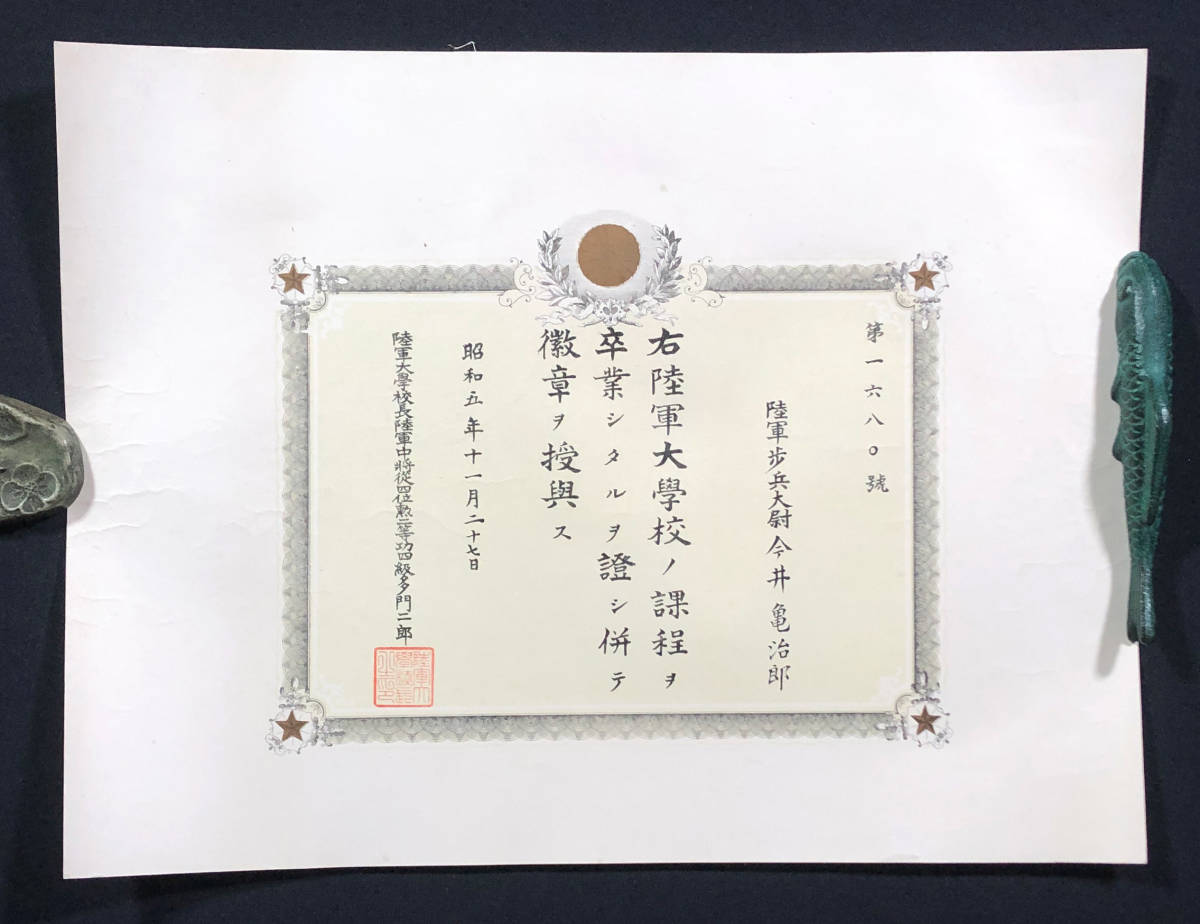 第一六八〇號
陸軍歩兵大尉 今井亀治郎
右陸軍大學校ノ課程ヲ
卒業シタルヲ證シ併テ
徽章ヲ授與ス
昭和五年十一月二十七日
陸軍大學校長陸軍中將從四位勲二等功四級多門二郎